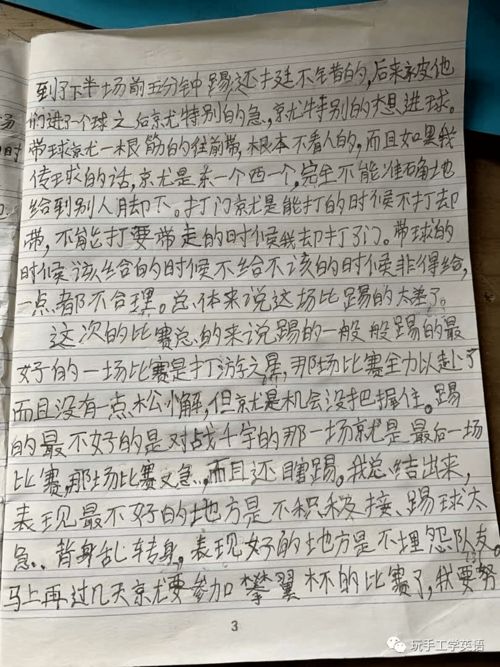 到了下半场前五分钟踢还打还不错的,后来被他
们进了个球之后就特别的急、就特别的想进球。
带球就一根筋的往前带,根本不看人的,而且如果我
传球的话,就是东一个西一个,完全不能准确地
给到别人脚下。打门就是能打的时候不打却
带,不能打要带走的时候我却打了门。带球的
时候该给的时候不给不该的时候非得给,
一点都不合理。总体来说这场比踢的太差了。
这次的比赛总的来说踢的一般般踢的最
好的一场比赛是打文星,那场比赛全力以赴了
而且没有一点松懈,但就是机会没把握住。踢
的最不好的是对战千宇的那一场就是最后一场
比赛,那场比赛又急、而且还瞎踢。我总结出来,
表现最不好的地方是不积极接、踢球太
急、背身乱转身,表现好的地方是不埋怨队友。
马上再过几天就要参加攀翼杯的比赛了,我要努
3
玩手工学英语